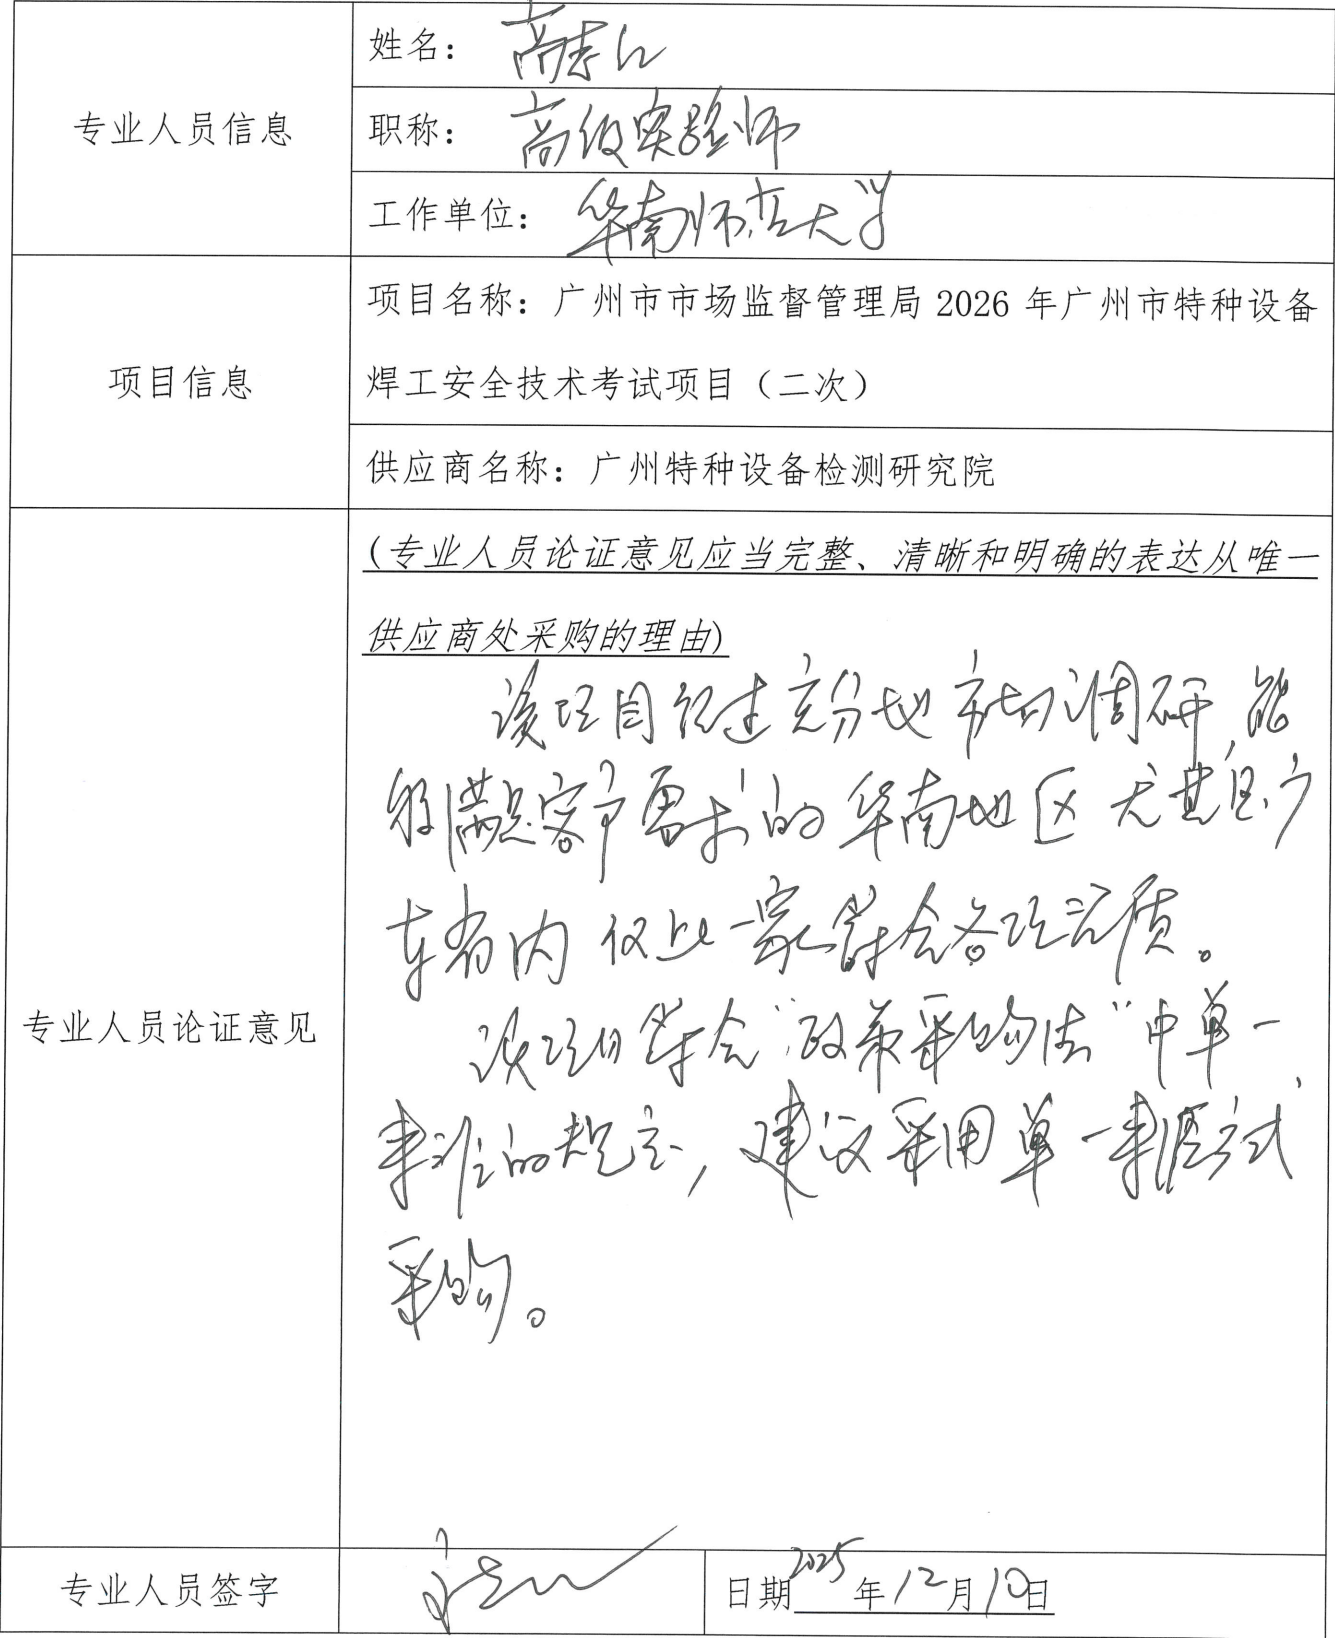 专业人员信息
姓名：高志江
职称：高级实验师
工作单位：华南师范大学
项目信息
项目名称：广州市市场监督管理局 2026 年广州市特种设备
焊工安全技术考试项目（二次）
供应商名称：广州特种设备检测研究院
专业人员论证意见
(专业人员论证意见应当完整、清晰和明确的表达从唯一
供应商处采购的理由)
该项目经过充分地市场调研，能
够满足客户需求的华南地区尤其是广
东省内仅此一家符合各项资质。
该项目符合“政府采购法”中单一
来源的规定，建议采用单一来源方式
采购。
专业人员签字
日期 2025 年 12 月 10 日